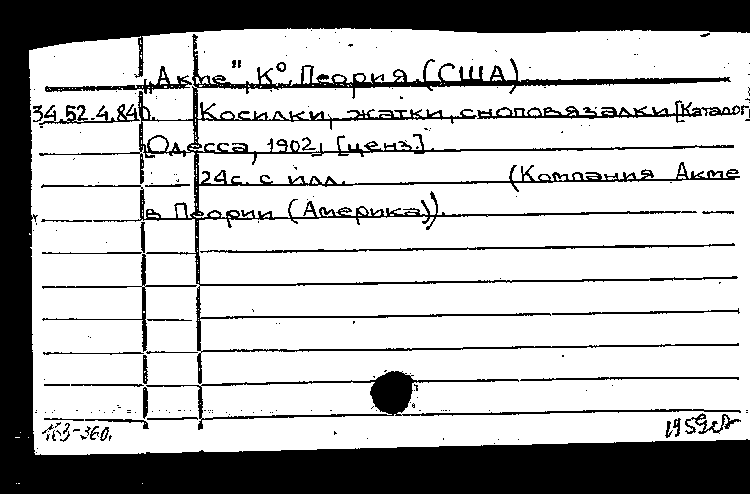 „Акме", К⁰, Пеория. (США)
34.52.4.840. Косилки, жатки, сноповязалки [Каталог]
Одесса, 1902, [ценз].
24с. с илл. (Компания Акме
в Пеории (Америка)).
163-360.